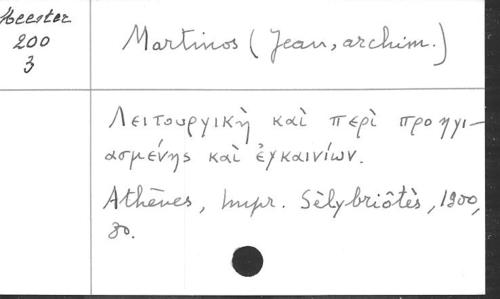 Meester
200
3
Martinos (Jean, archim.)
Λειτουργικὴ καὶ περὶ προηγι-
ασμένης καὶ ἐγκαινίων.
Athènes, Impr. Sèlybriôtès, 1900,
8o.